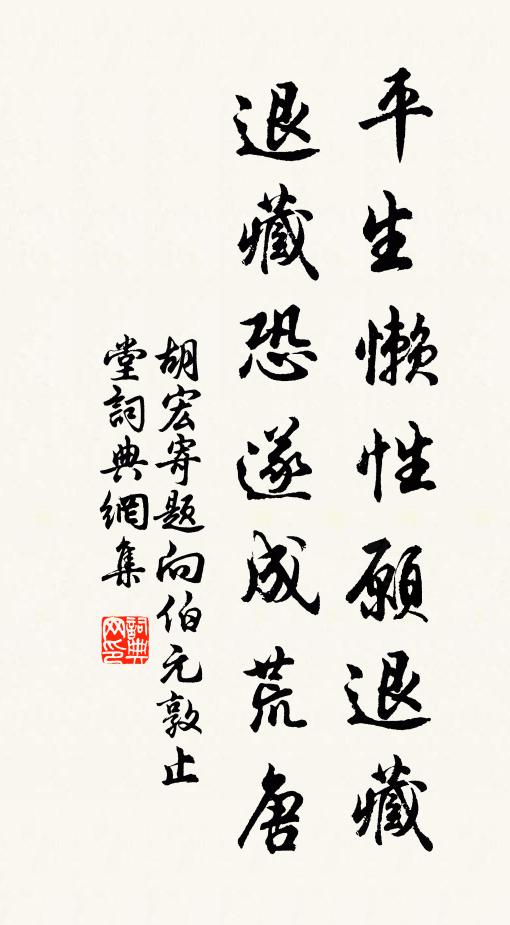 平生懒性願退藏
退藏恐遂成荒唐
胡宏寄题向伯元敦止
堂詞典網集
詞典网印